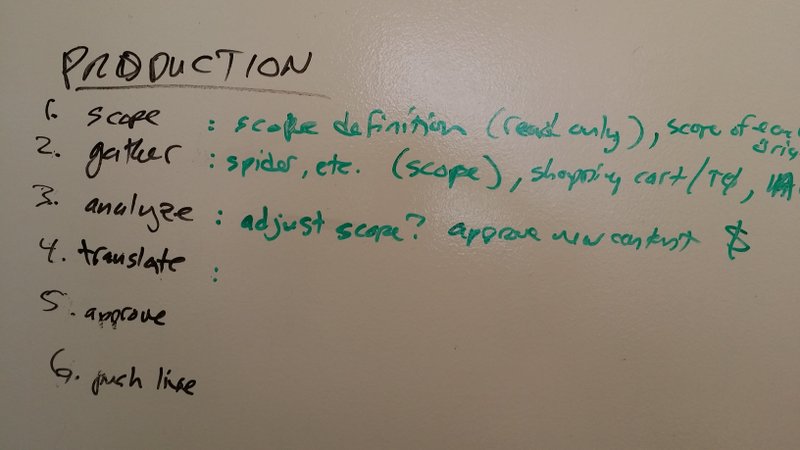 PRODUCTION
1. scope : scope definition (read only), score of
2. gather : spider, etc. (scope), shopping cart/
3. analyze : adjust scope? approve new content $
4. translate :
5. approve
6. push live